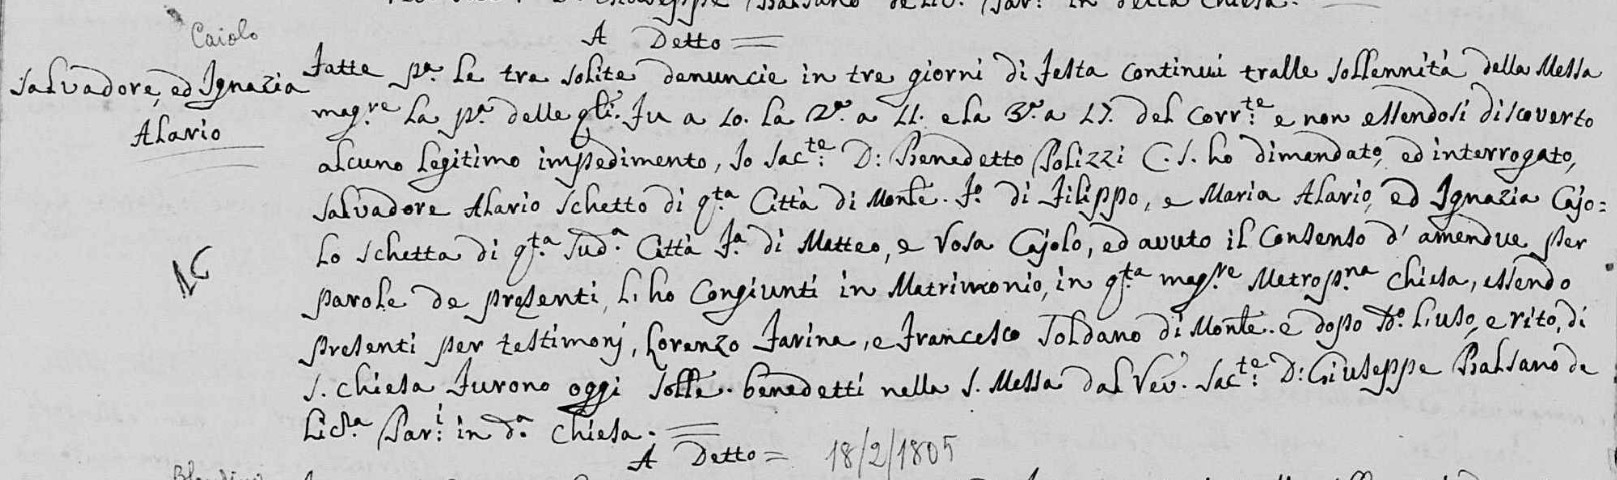 D: Giuseppe Balsano de Lic. Par.i in detta Chiesa.
A Detto =
Caiolo
Salvadore, ed Ignazia
Alario
Fatte pa. le tra solite denuncie in tre giorni di festa continui tralle sollennità della Messa
mag.re la pa. delle qli. fu a 10. la 2a. a 11. e la 3a. a 17. del corr.te e non essendosi discoverto
alcuno legitimo impedimento, Io Sac.te D: Benedetto Polizzi C. S. ho dimandato, ed interrogato,
Salvadore Alario schetto di q.ta Città di Monle. fo. di Filippo, e Maria Alario, ed Ignazia Cajo=
lo schetta di q.ta sud.a Città fa. di Matteo, e Rosa Cajolo, ed avuto il consenso d'amendue per
parole de presenti, li ho congiunti in Matrimonio, in q.ta mag.re Metrop.na Chiesa, essendo
presenti per testimonj, Lorenzo Farina, e Francesco Toldano di Monle. e dopo do. l'uso, e rito, di
S. Chiesa furono oggi solle. benedetti nella S. Messa dal Rev. Sac.te D: Giuseppe Balsano de
Lic.a Par.i in d.a Chiesa. =
A Detto = 18/2/1805